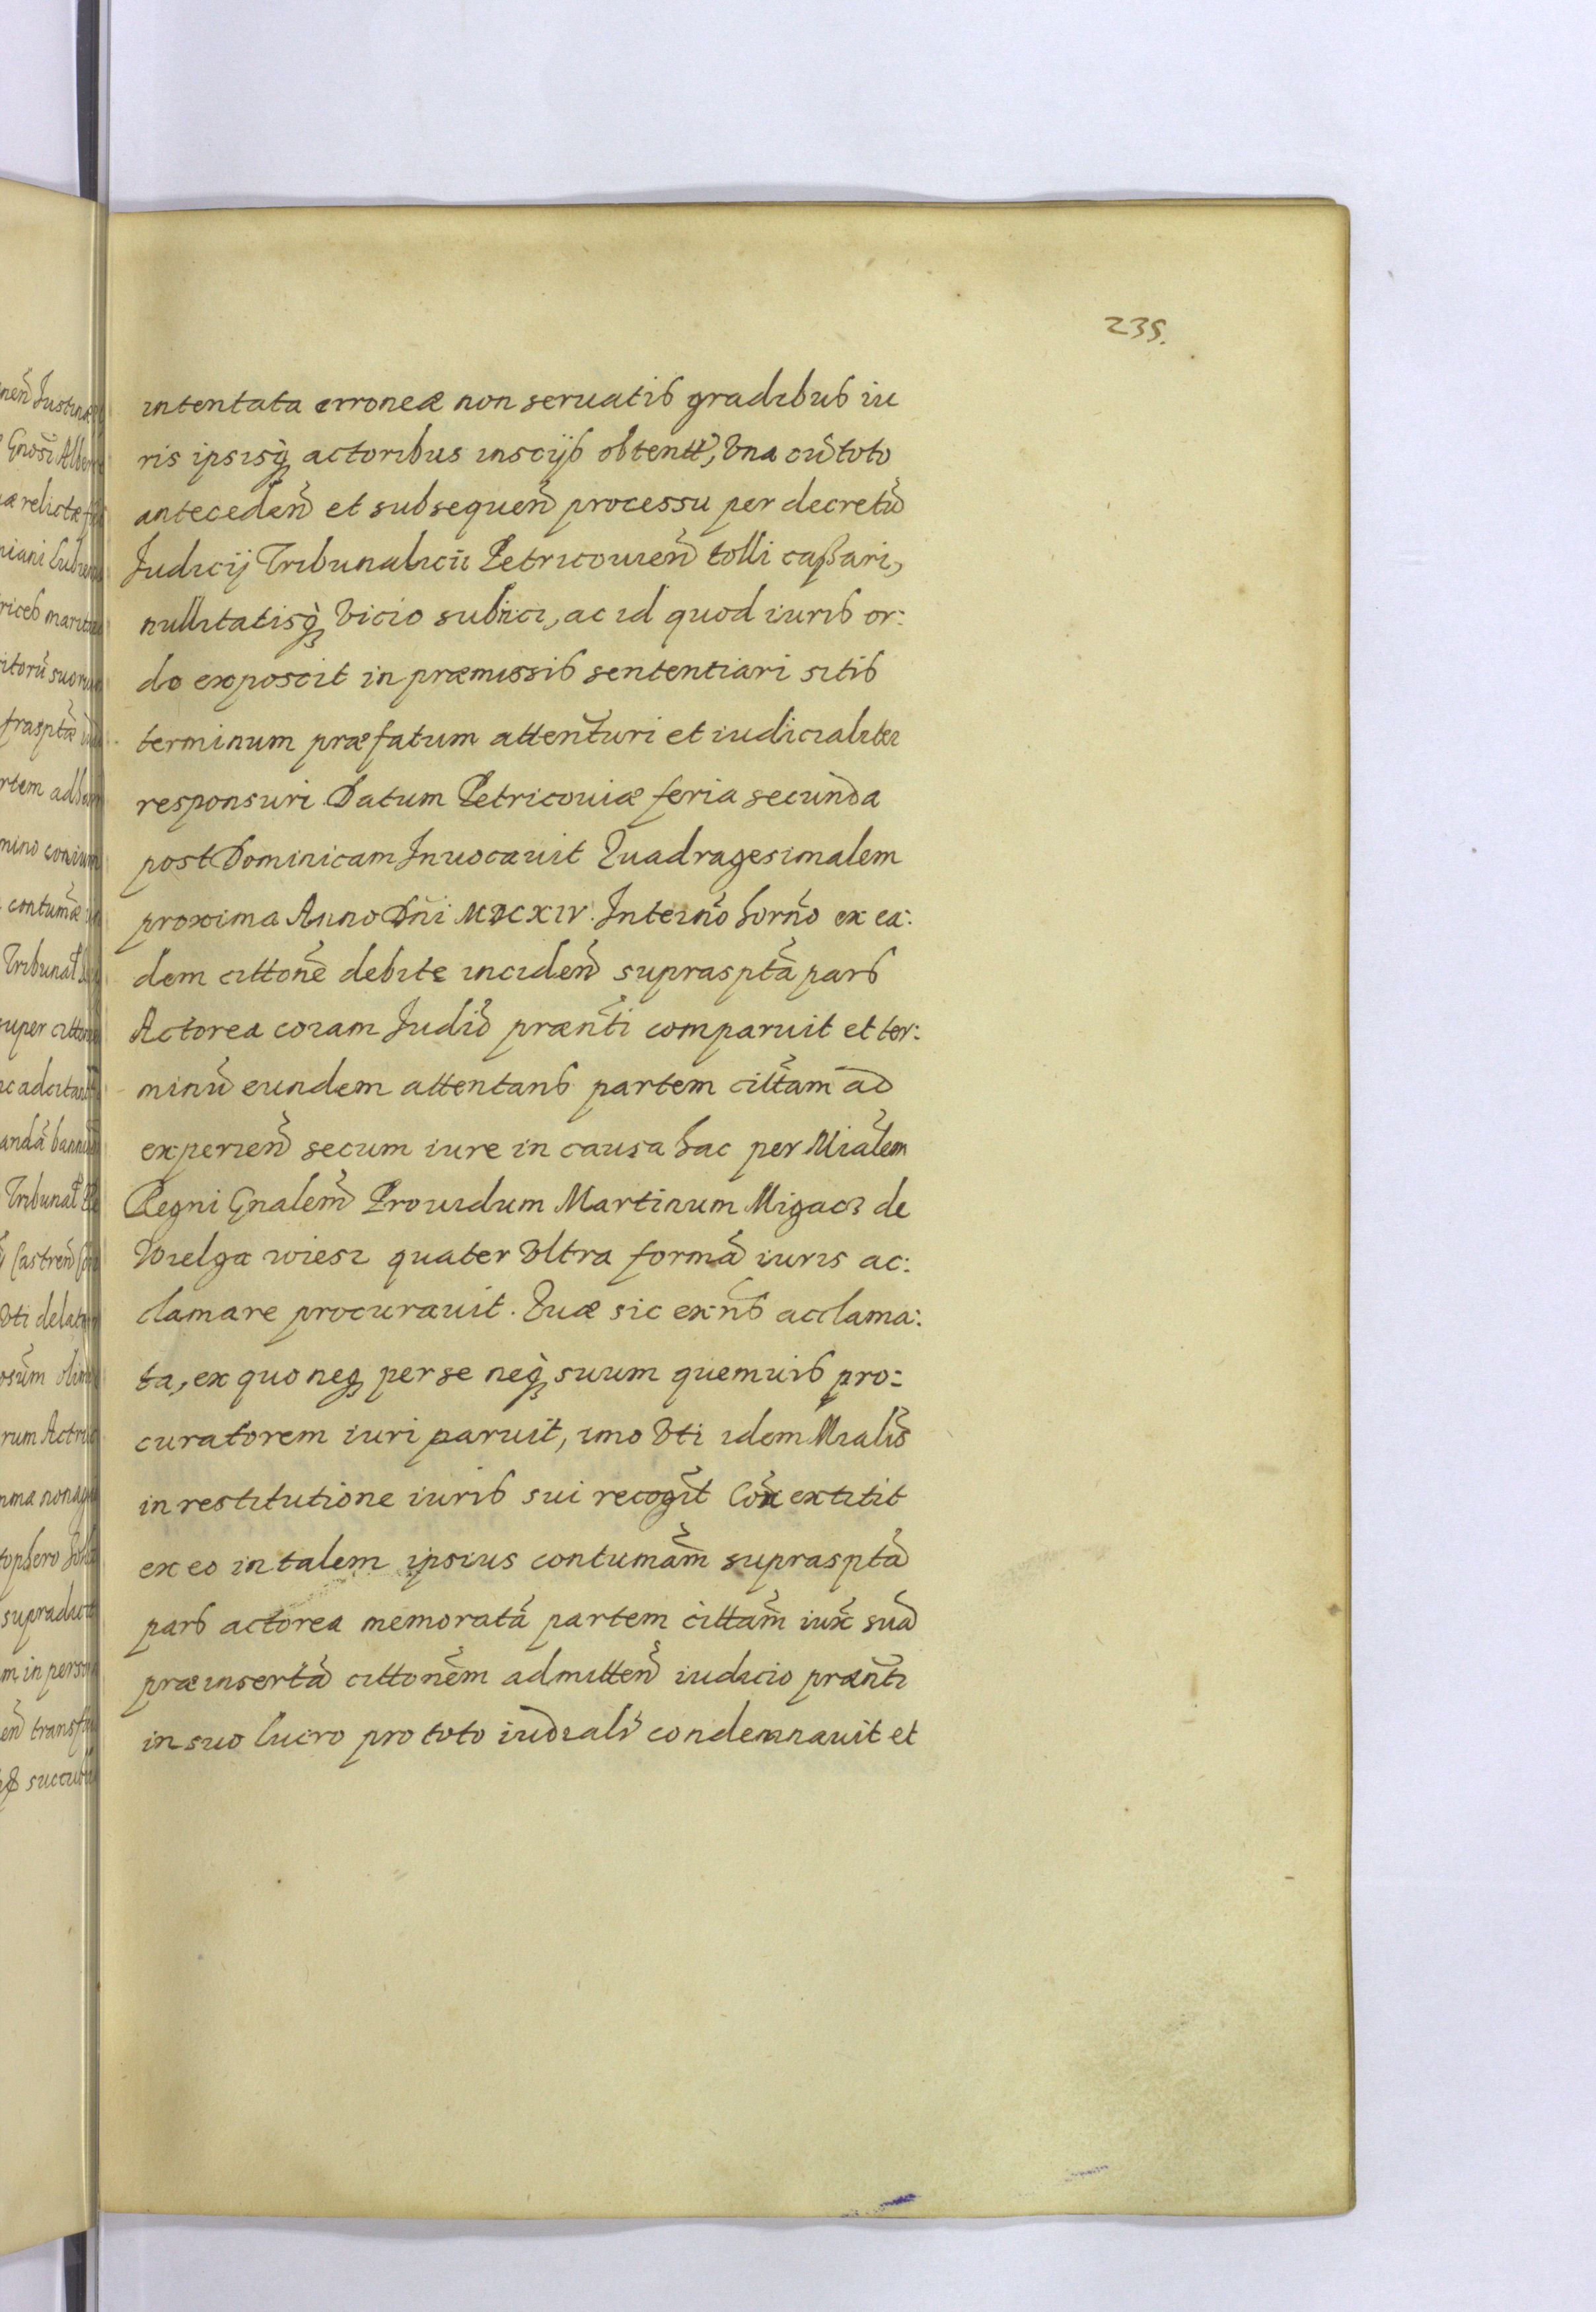 235.
intentata erroneæ non seruatis gradibus iu
ris ipsisq̧ actoribus inscijs obtent, Vna cũ toto
antecedeñ et subsequeñ processu per decretũ
Judicij Tribunalicii Petricouieñ tolli caßari,
nullitatisq̧ Vicio subiici, ac id quod iuris or:
do exposcit in præmissis sententiari sitis
terminum præfatum atten̄turi et iudicialiter
responsuri. Datum Petricouiæ feria secunda
post Dominicam Inuocauit Quadragesimalem
proxima Anno Dñi MDCXIV. In teiño horño ex ea:
dem cittoñe debite incideñ supraspt̃a pars
Actorea coram Judiõ præñti comparuit et ter:
minũ eundem attentans partem citt̃am ad
experieñ secum iure in causa hac per Mial̃em
Regni Gnalem̃ Prouidum Martinum Migacz de
Wielga wiesi quater Vltra formã iuris ac:
clamare procurauit. Quæ sic exñs acclama:
ta, ex quo neq̧ per se neq̧ suum quemuis pro:
curatorem iuri paruit, imo Vti idem Mialis̃
in restitutione iuris sui recog̃it Coñx extitit
ex eo in talem ipsius contumam̃ supraspt̃a
pars actorea memoratã partem cittam̃ iux̃ suã
præinsertã cittoñem admitteñ iudicio præñti
in suo lucro pro toto iudiali condemnauit et